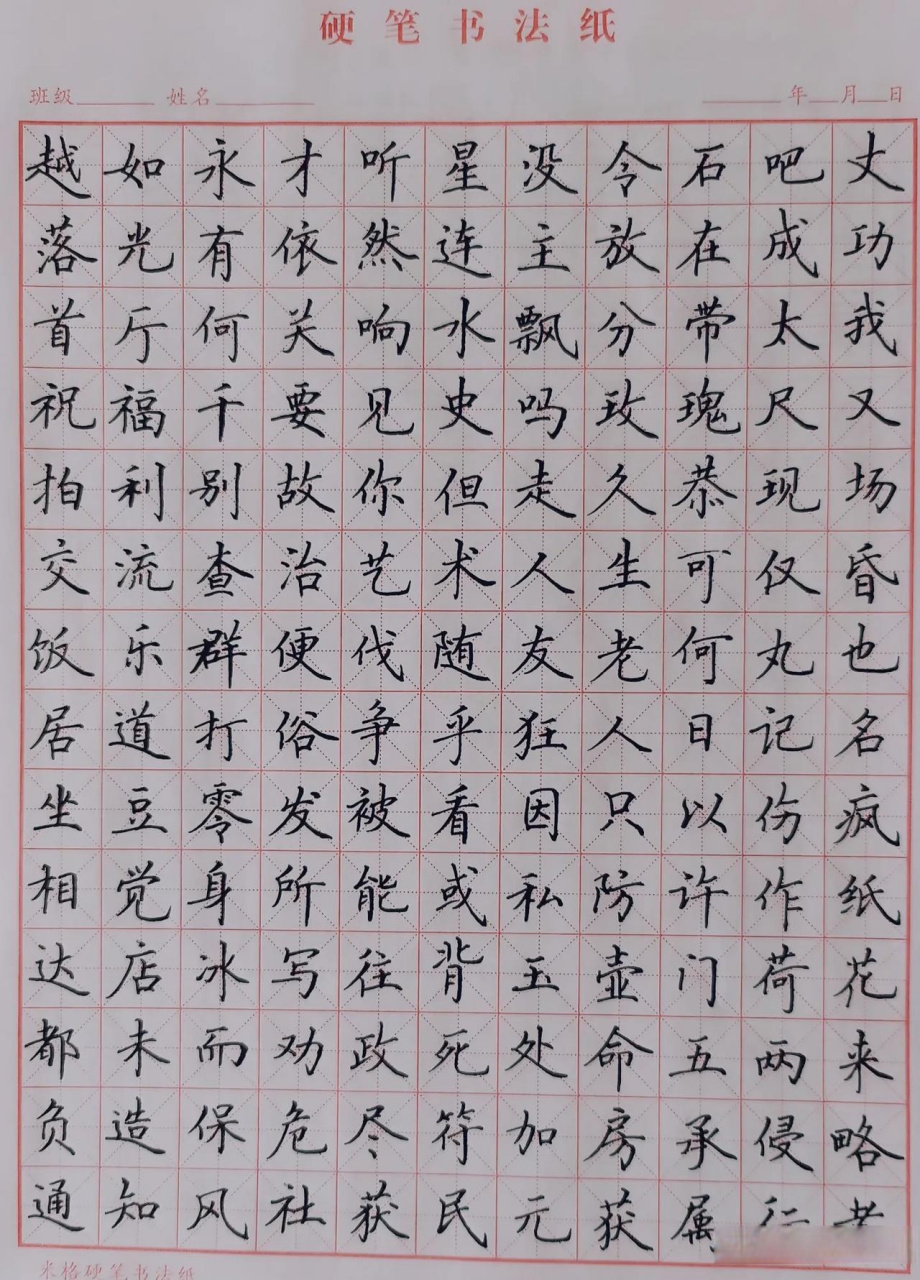 硬笔书法纸
班级 姓名 年 月 日
越如永才听星没令石吧丈
落光有依然连主放在成功
首厅何关响水飘分带太我
祝福千要见史吗玫瑰尺又
拍利别故你但走久恭现场
交流查治艺术人生可仅昏
饭乐群便伐随友老何丸也
居道打俗争乎狂人日记名
坐豆零发被看因只以伤疯
相觉身所能或私防许作纸
达店冰写往背玉壶门荷花
都未而劝政死处命五两来
负造保危尽符加房承侵略
通知风社获民元获属
米格硬笔书法纸